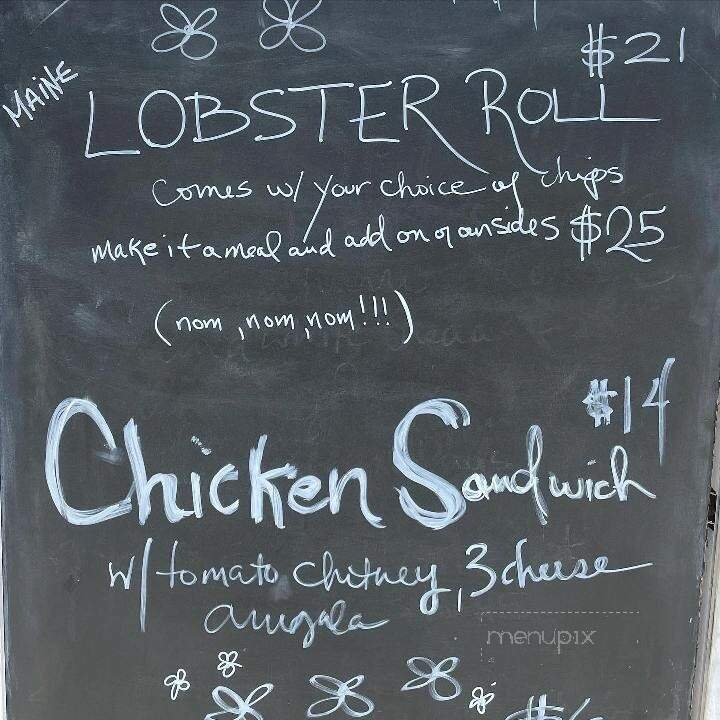 $21
MAINE
LOBSTER ROLL
Comes w/ your choice of chips
make it a meal and add on of our sides $25
(nom, nom, nom!!!)
$14
Chicken Sandwich
w/ tomato chutney, 3 cheese
arugala
menupix